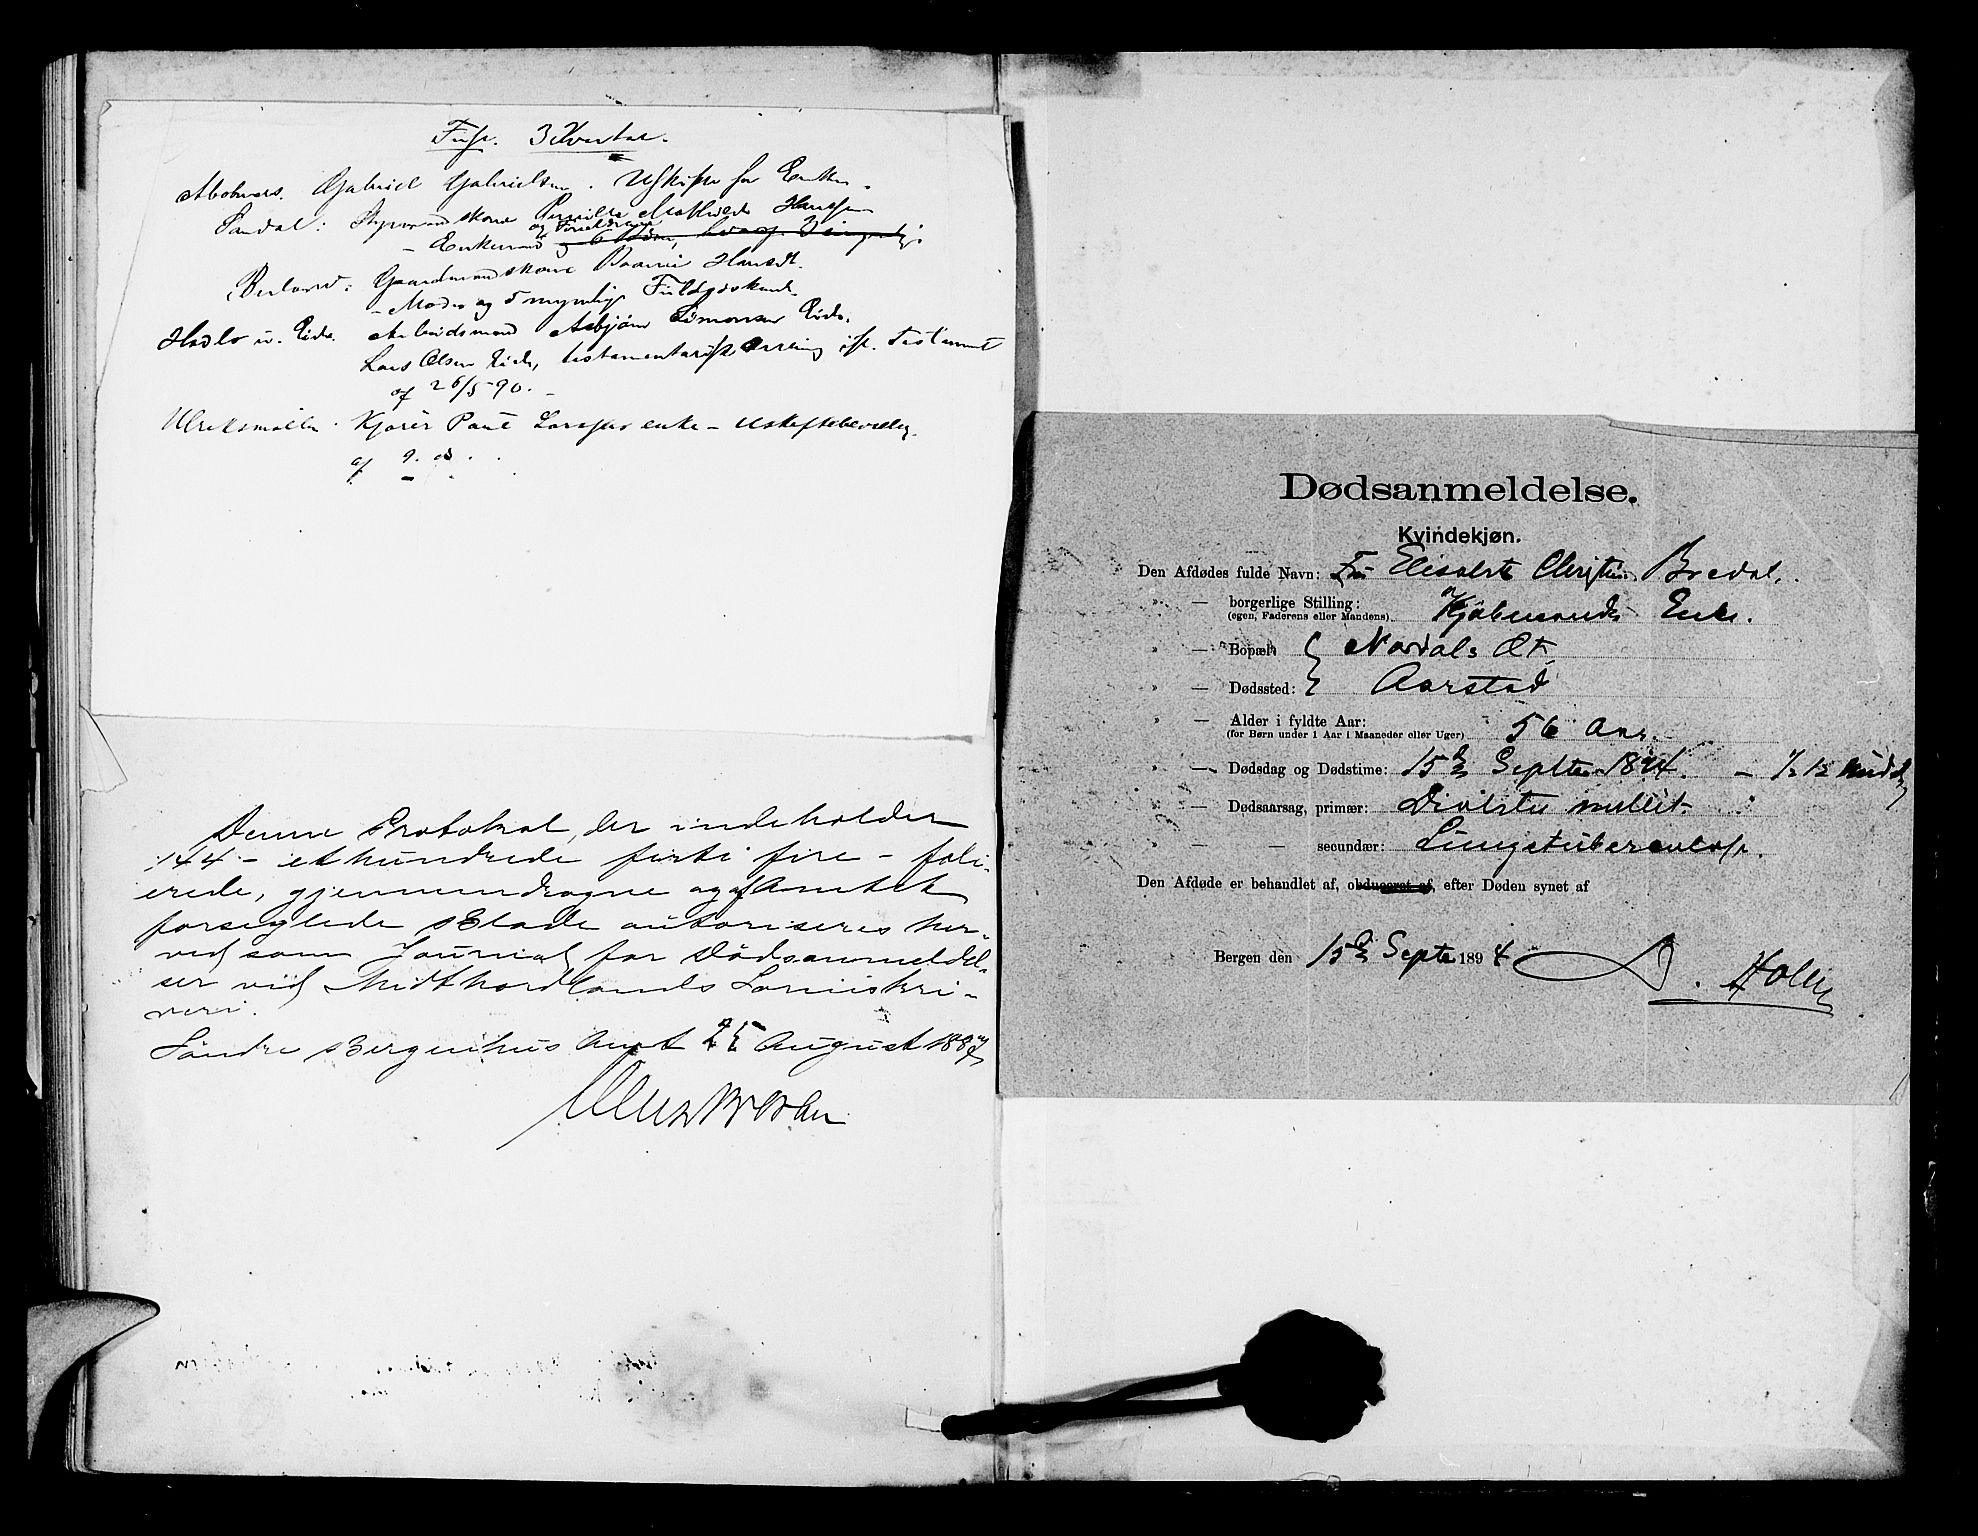 Fuse. 3 Kvartal.
Gabriel Gabrielsen. Uskifte for Enken.
Sandal: Skone Pernille Mathilde Hansen
og Forældrene
- Enkemand og 6 Børn,
Gaardmandskone Hansdt.
- Moder og 5 myndige Fuldsødskende.
Arbeidsmand Asbjørn Simonsen Eide.
Lars Olsen Eide, testamentarisk Arving ifl. Testament
af 26/5 90.
Ulriksmølle Enke - Uskiftebevilling
af 9. 8.
Denne Protokol, der indeholder
144 - ethundrede firti fire - foli-
erede, gjennemdragne og af Amtet
forseglede Blade autoriseres her-
ved som Journal for Dødsanmeldel-
ser ved Midthordlands Sorenskri-
veri.
Søndre Bergenhus Amt 25 August 1887
Dødsanmeldelse.
Kvindekjøn.
Den Afdødes fulde Navn: Fru Elisabeth Christine Bredal.
" — borgerlige Stilling: Kjøbmands Enke.
(egen, Faderens eller Mandens).
" — Bopæl:
" — Dødssted: Aarstad
" — Alder i fyldte Aar: 56 Aar.
(for Børn under 1 Aar i Maaneder eller Uger)
" — Dødsdag og Dødstime: 15de Septbr 1894. – ½ 12 Midd
" — Dødsaarsag, primær: Diabetes mellit.
" — — secundær: Lungetuberculose.
Den Afdøde er behandlet af, obduceret af, efter Døden synet af
Bergen den 15de Septbr 1894